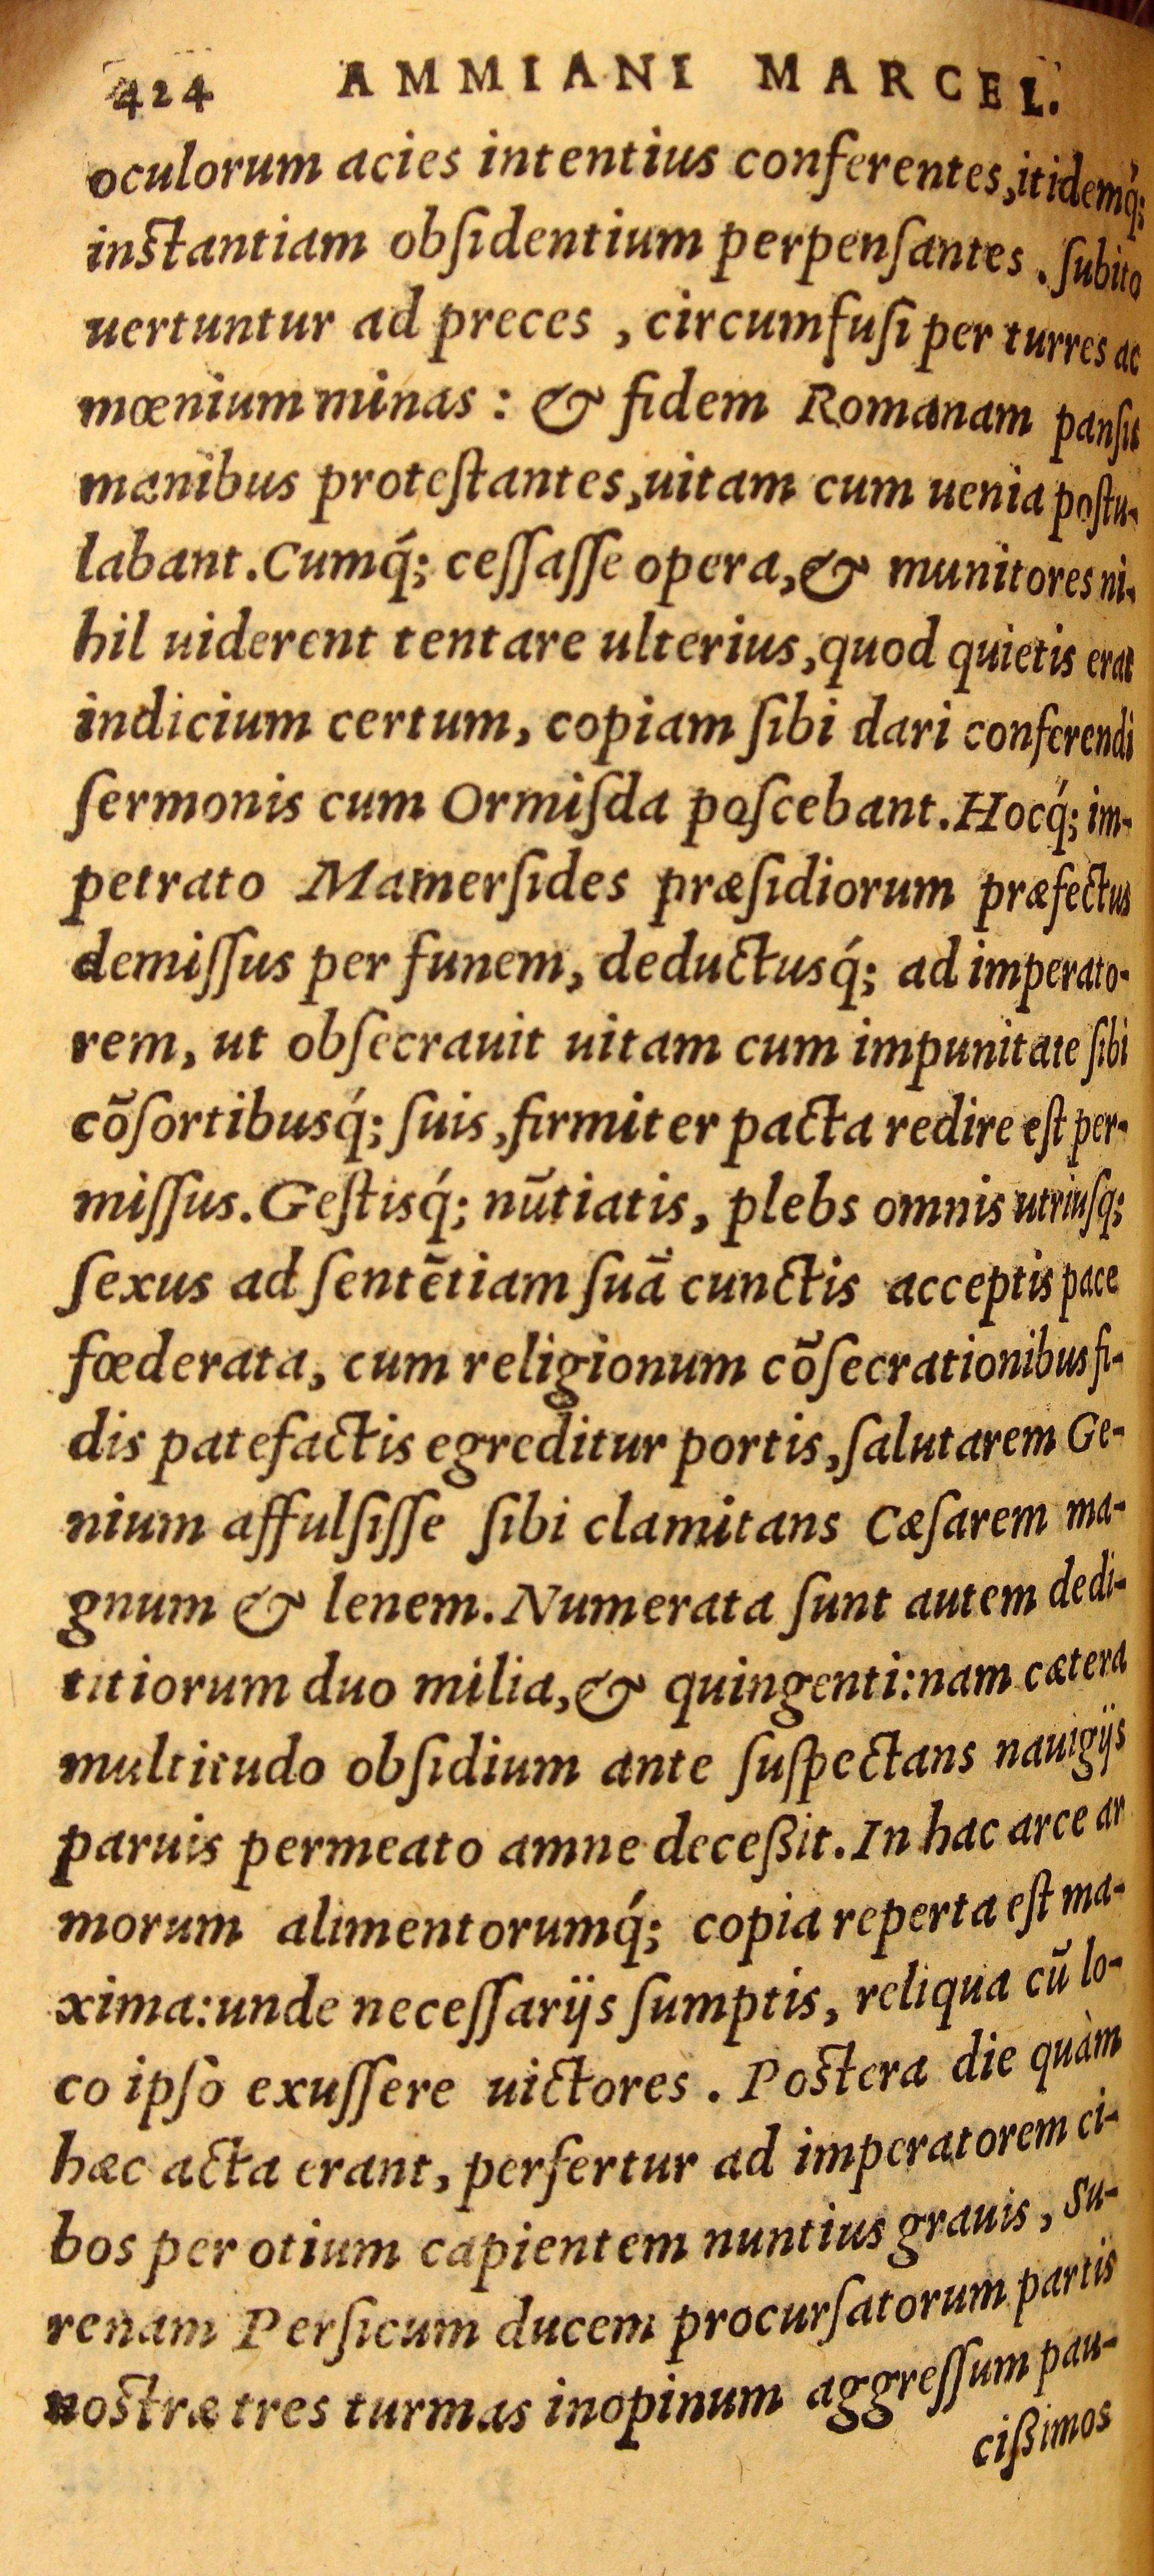 424 AMMIANI MARCEL.
oculorum acies intentius conferentes, itidemq́;
instantiam obſidentium perpenſantes. ſubito
uertuntur ad preces, circumfuſi per turres ac
mœnium minas: & fidem Romanam panſis
manibus proteſtantes, uitam cum uenia poſtu-
labant. Cumq́; ceſſaſſe opera, & munitores ni-
hil uiderent tentare ulterius, quod quietis erat
indicium certum, copiam ſibi dari conferendi
ſermonis cum Ormiſda poſcebant. Hocq́; im-
petrato Mamerſides præſidiorum præfectus
demiſſus per funem, deductusq́; ad imperato-
rem, ut obſecrauit uitam cum impunitate ſibi
cõſortibusq́; ſuis, firmiter pacta redire eſt per-
miſſus. Geſtisq́; nũtiatis, plebs omnis utriuſq;
ſexus ad ſentẽtiam ſuã cunctis acceptis pace
fœderata, cum religionum cõſecrationibus fi-
dis patefactis egreditur portis, ſalutarem Ge-
nium affulſiſſe ſibi clamitans Cæſarem ma-
gnum & lenem. Numerata ſunt autem dedi-
titiorum duo milia, & quingenti: nam cætera
multitudo obſidium ante ſuſpectans nauigijs
paruis permeato amne deceßit. In hac arce ar
morum alimentorumq́; copia reperta eſt ma-
xima: unde neceſſarijs ſumptis, reliqua cũ lo-
co ipſo exuſſere uictores. Postera die quàm
hæc acta erant, perfertur ad imperatorem ci-
bos per otium capientem nuntius grauis, Su-
renam Perſicum ducem procurſatorum partis
nostræ tres turmas inopinum aggreſſum pau-
cißimos